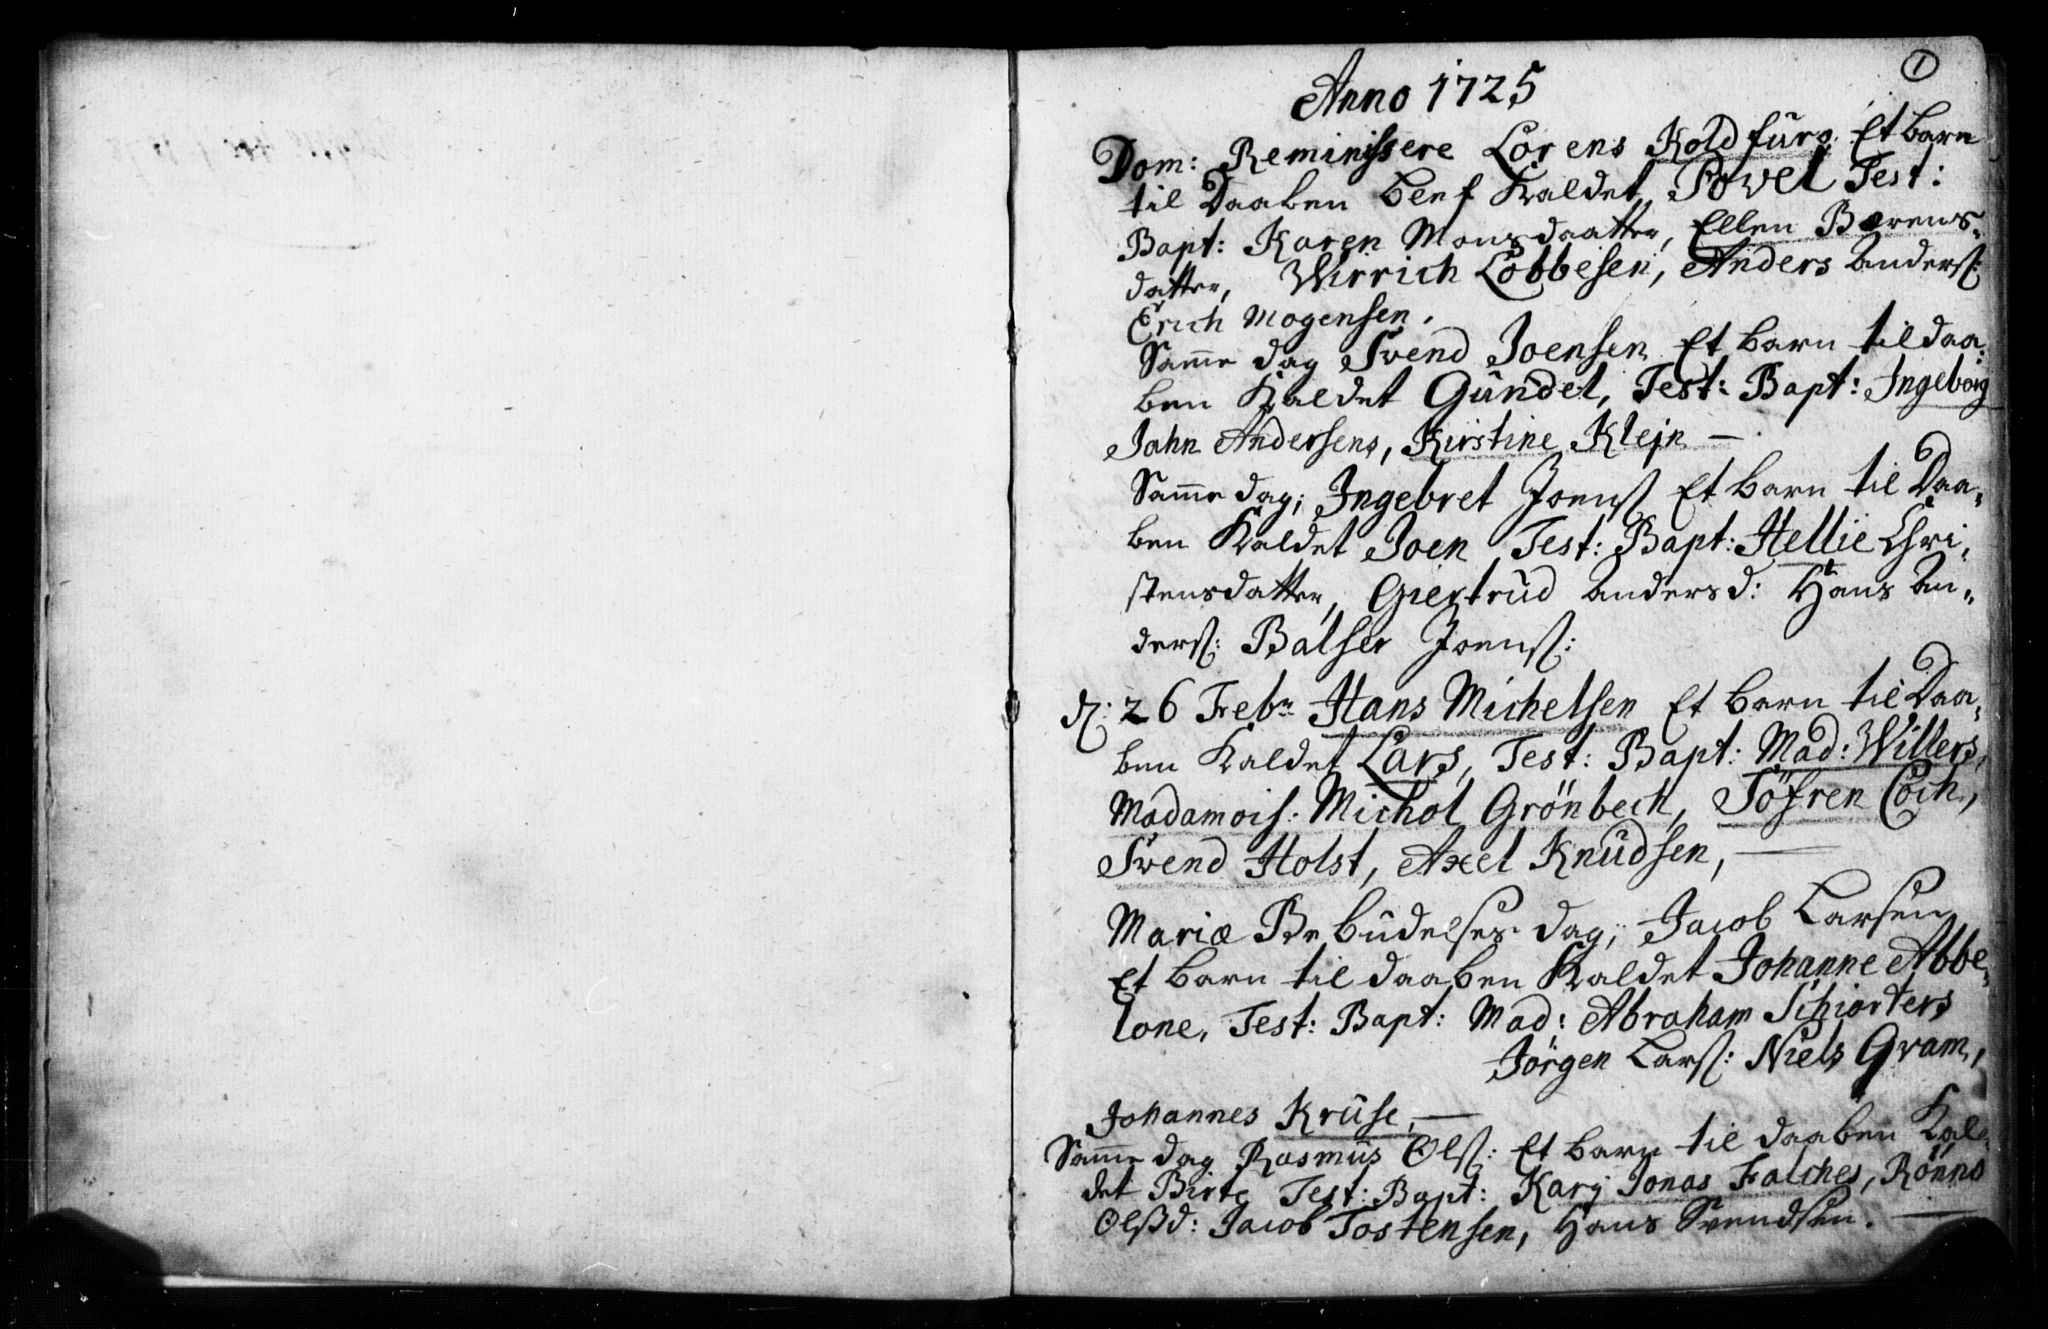 1
Anno 1725
Dom: Reminissere Lorens Koldfurg Et barn
til Daaben blef Kaldet Povel Test:
Bapt: Karen Monsdaatter, Ellen Berens-
datter, Wirrich Löbbesen, Anders anders:
Erich Mogensen.
Samme dag Svend Joensen Et barn til daa-
ben Kaldet Gundel, Test: Bapt: Ingeborg
Jahn Andersens, Kirstine Klejn —
Samme dag, Ingebret Joens Et barn til Daa-
ben Kaldet Joen, Test: Bapt: Hellie Chri-
stensdatter, Giertrud andersd: Hans An-
ders: Balser Joens:
D: 26 Febr Hans Michelsen Et barn til Daa-
ben Kaldet Lars, Test: Bapt: Mad: Willers,
Madamois: Michol Grönbech, Söfren Coch,
Svend Holst, Axel Knudsen, —
Mariæ Bebudelses dag, Jacob Larsen
Et barn til daaben Kaldet Johanne Abbe-
lone, Test: Bapt: Mad: Abraham Schiorters
Jörgen Lars: Niels Gram,
Johannes Kruse, —
Samme dag Rasmus Ols: Et barn til daaben Kal-
det Birte Test: Bapt: Karj Jonas Falches, Rönno
Olsd: Jacob Tostensen, Hans Svendsen. —